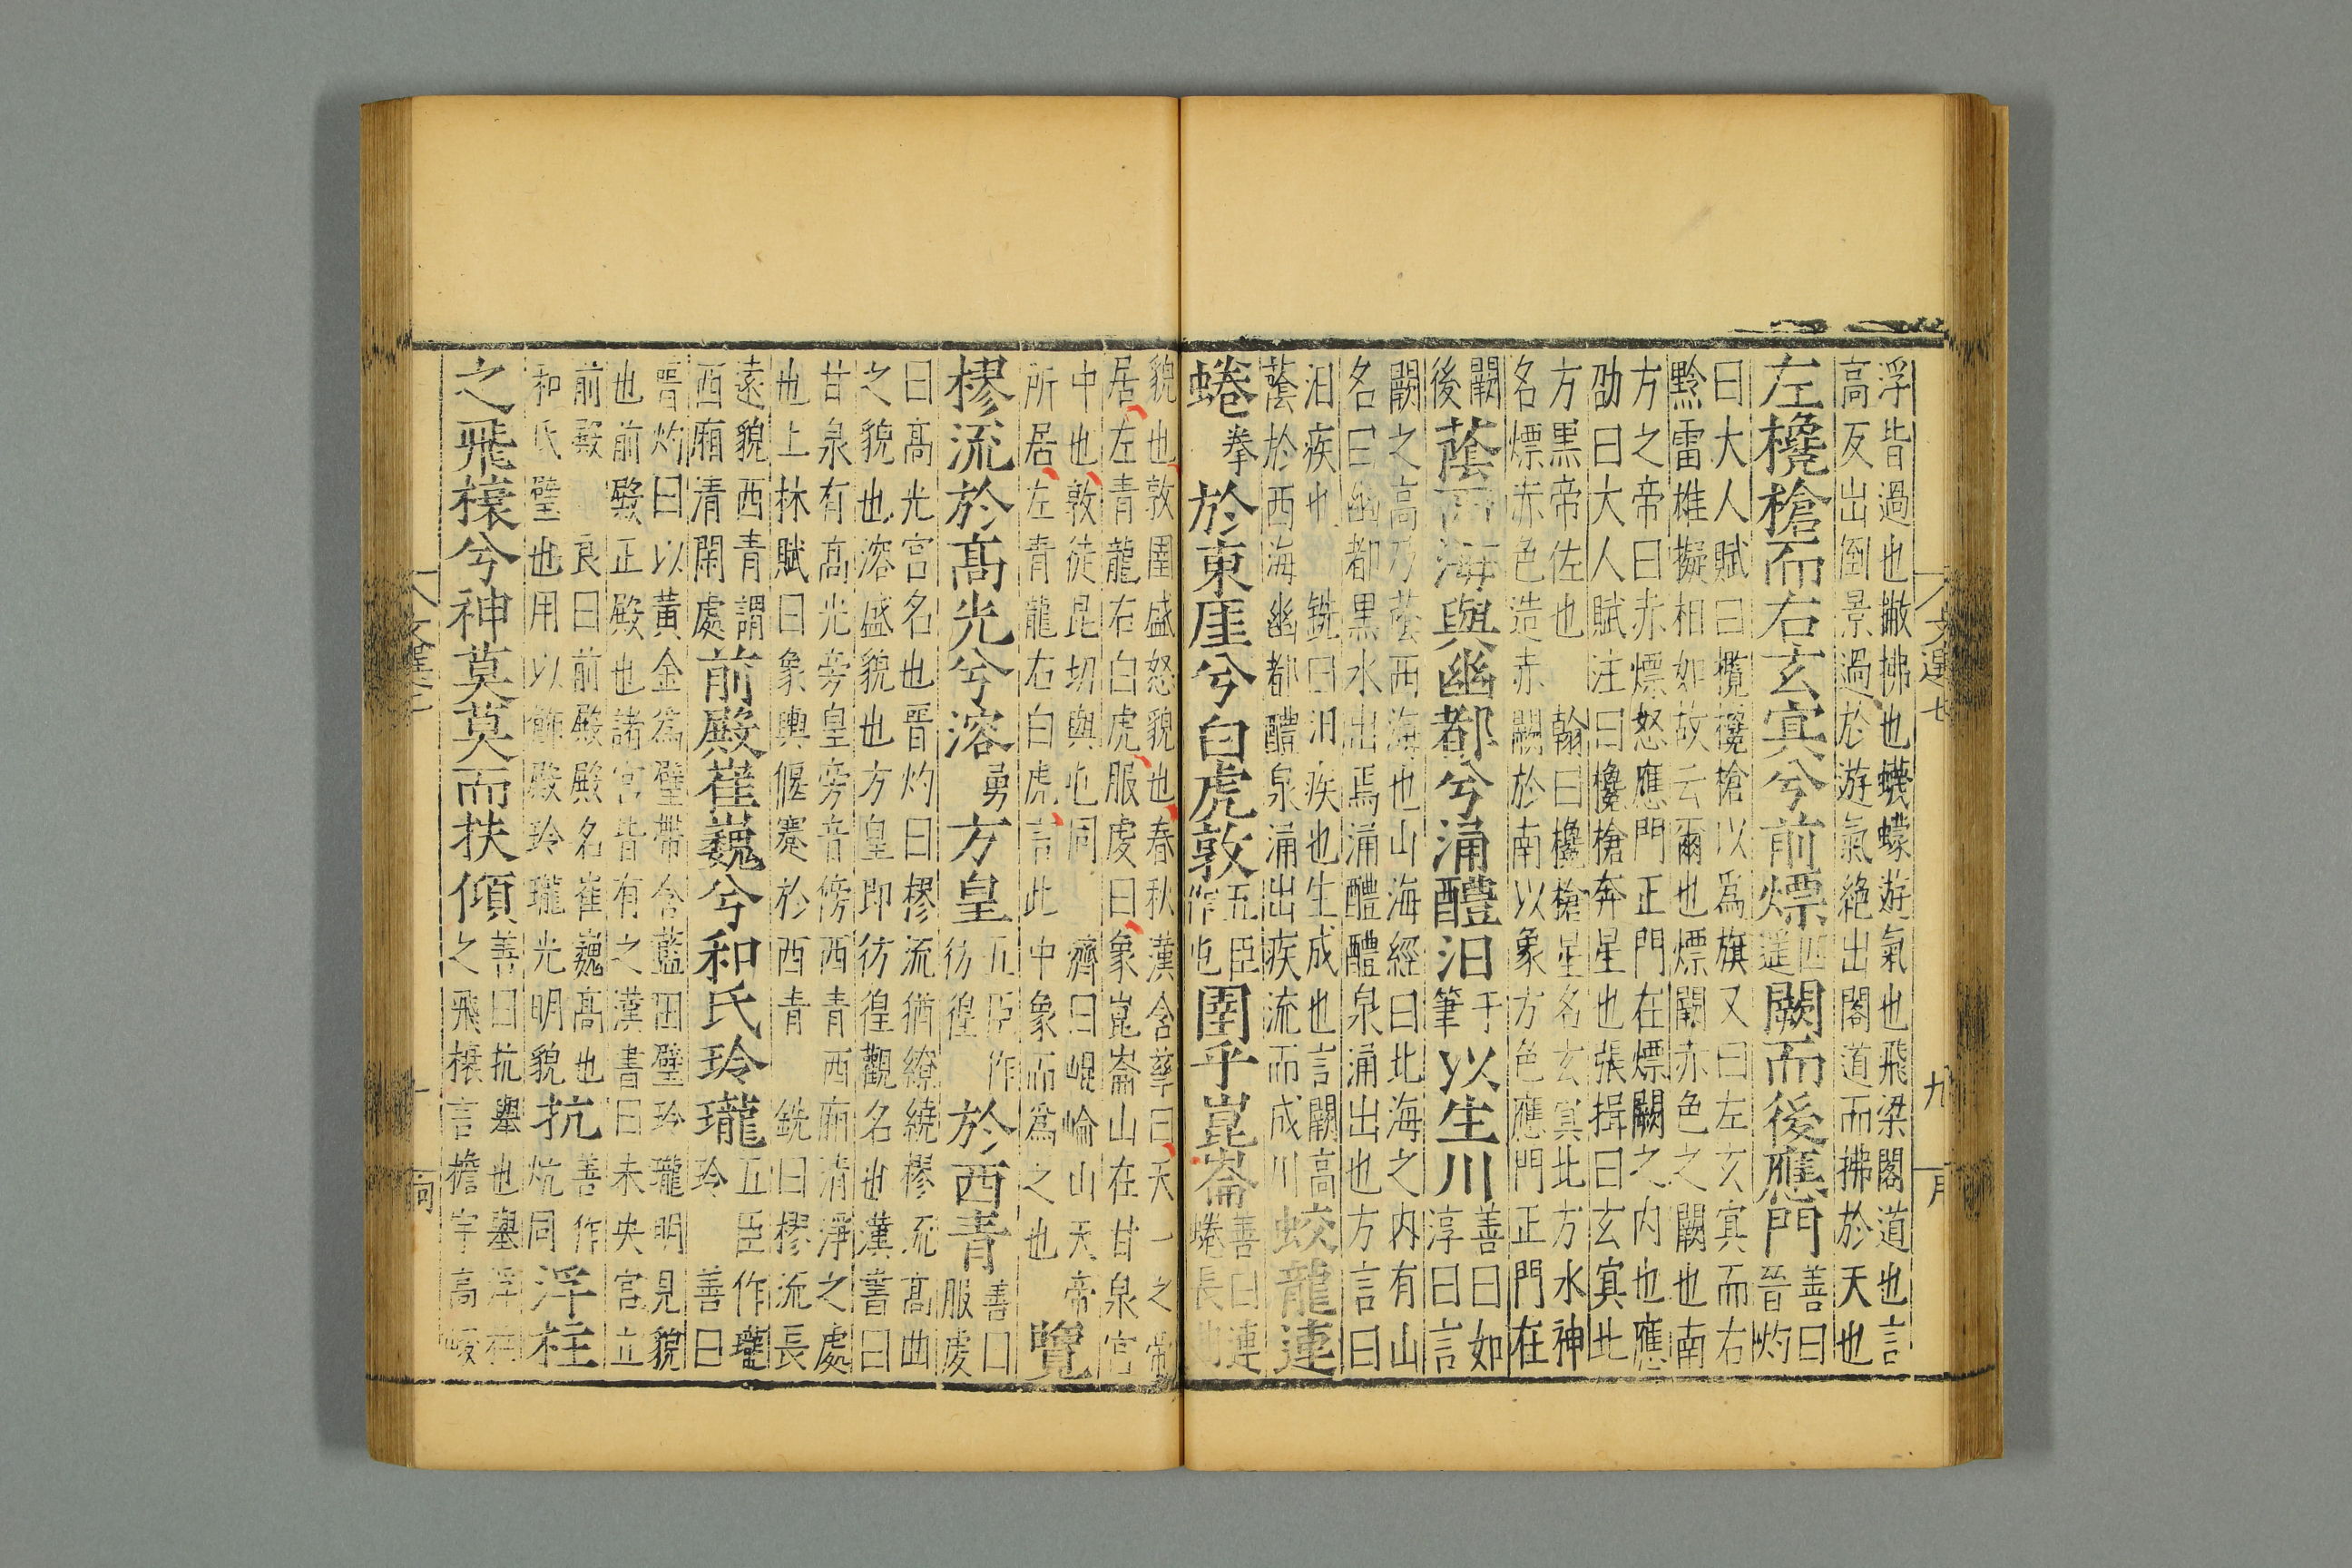 浮皆過也撇拂也蠛蠓遊氣也飛梁閣道也言
高反出倒景過於遊氣絶出閣道而拂於天也
左欃槍而右玄冥兮前熛四遥闕而後應門善曰晉灼
曰大人賦曰攬欃槍以爲旗又曰左玄冥而右
黔雷椎擬相如故云爾也熛闕赤色之闕也南
方之帝曰赤熛怒應門正門在熛闕之内也應
劭曰大人賦注曰欃槍奔星也張揖曰玄冥北
方黒帝佐也翰曰欃槍星名玄冥北方水神
名熛赤色造赤闕於南以象方色應門正門在
闕後蔭西海與幽都兮涌醴汩于筆以生川善曰如淳曰言
闕之高乃蔭西海也山海經曰北海之内有山
名曰幽都黒水出焉涌醴醴泉涌出也方言曰
汩疾也銑曰汩疾也生成也言闕高
蔭於西海幽都醴泉涌出疾流而成川蛟龍連
蜷拳於東厓兮白虎敦五臣作屯圉乎崑崙善曰連蜷長
貌也敦圉盛怒貌也春秋漢含孳曰天一之帝
居左青龍右白虎服虔曰象崑崙山在甘泉宫
中也敦徒昆切與屯同濟曰崐崘山天帝
所居左青龍右白虎言此中象而爲之也覽
樛流於髙光兮溶勇方皇五臣作彷徨於西青善曰服虔
曰髙光宫名也晉灼曰樛流猶繚繞樛流髙曲
之貌也溶盛貌也方皇即彷徨觀名也漢書曰
甘泉有髙光旁皇旁音傍西青西廂清淨之處
也上林賦曰象輿偃蹇於西青銑曰樛流長
遠貌西青謂
西廂清閑處前殿崔巍兮和氏玲瓏五臣作瓏玲善曰
晉灼曰以黃金爲璧帶含藍田璧玲瓏明見貌
也前殿正殿也諸宫皆有之漢書曰未央宫立
前殿良曰前殿殿名崔巍髙也
和氏璧也用以飾殿玲瓏光明貌抗善作炕同浮柱
之飛榱兮神莫莫而扶傾善曰抗舉也舉浮柱之飛榱言檐宇高峻
文選七
九